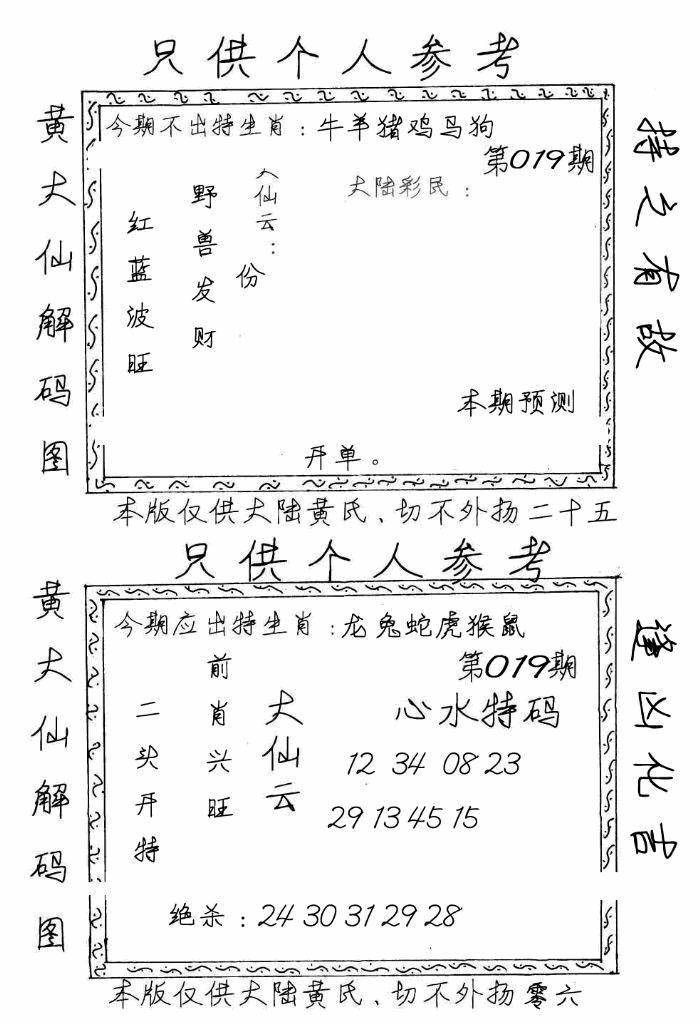 只供个人参考
黄大仙解码图
持之有故
今期不出特生肖：牛羊猪鸡马狗
第019期
大陆彩民：
大仙云：
份
野兽发财
红蓝波旺
本期预测
开单。
本版仅供大陆黄氏、切不外扬二十五
只供个人参考
黄大仙解码图
逢凶化吉
今期应出特生肖：龙兔蛇虎猴鼠
第019期
心水特码
大仙云
前肖兴旺
二头开特
12 34 08 23
29 13 45 15
绝杀：24 30 31 29 28
本版仅供大陆黄氏、切不外扬零六